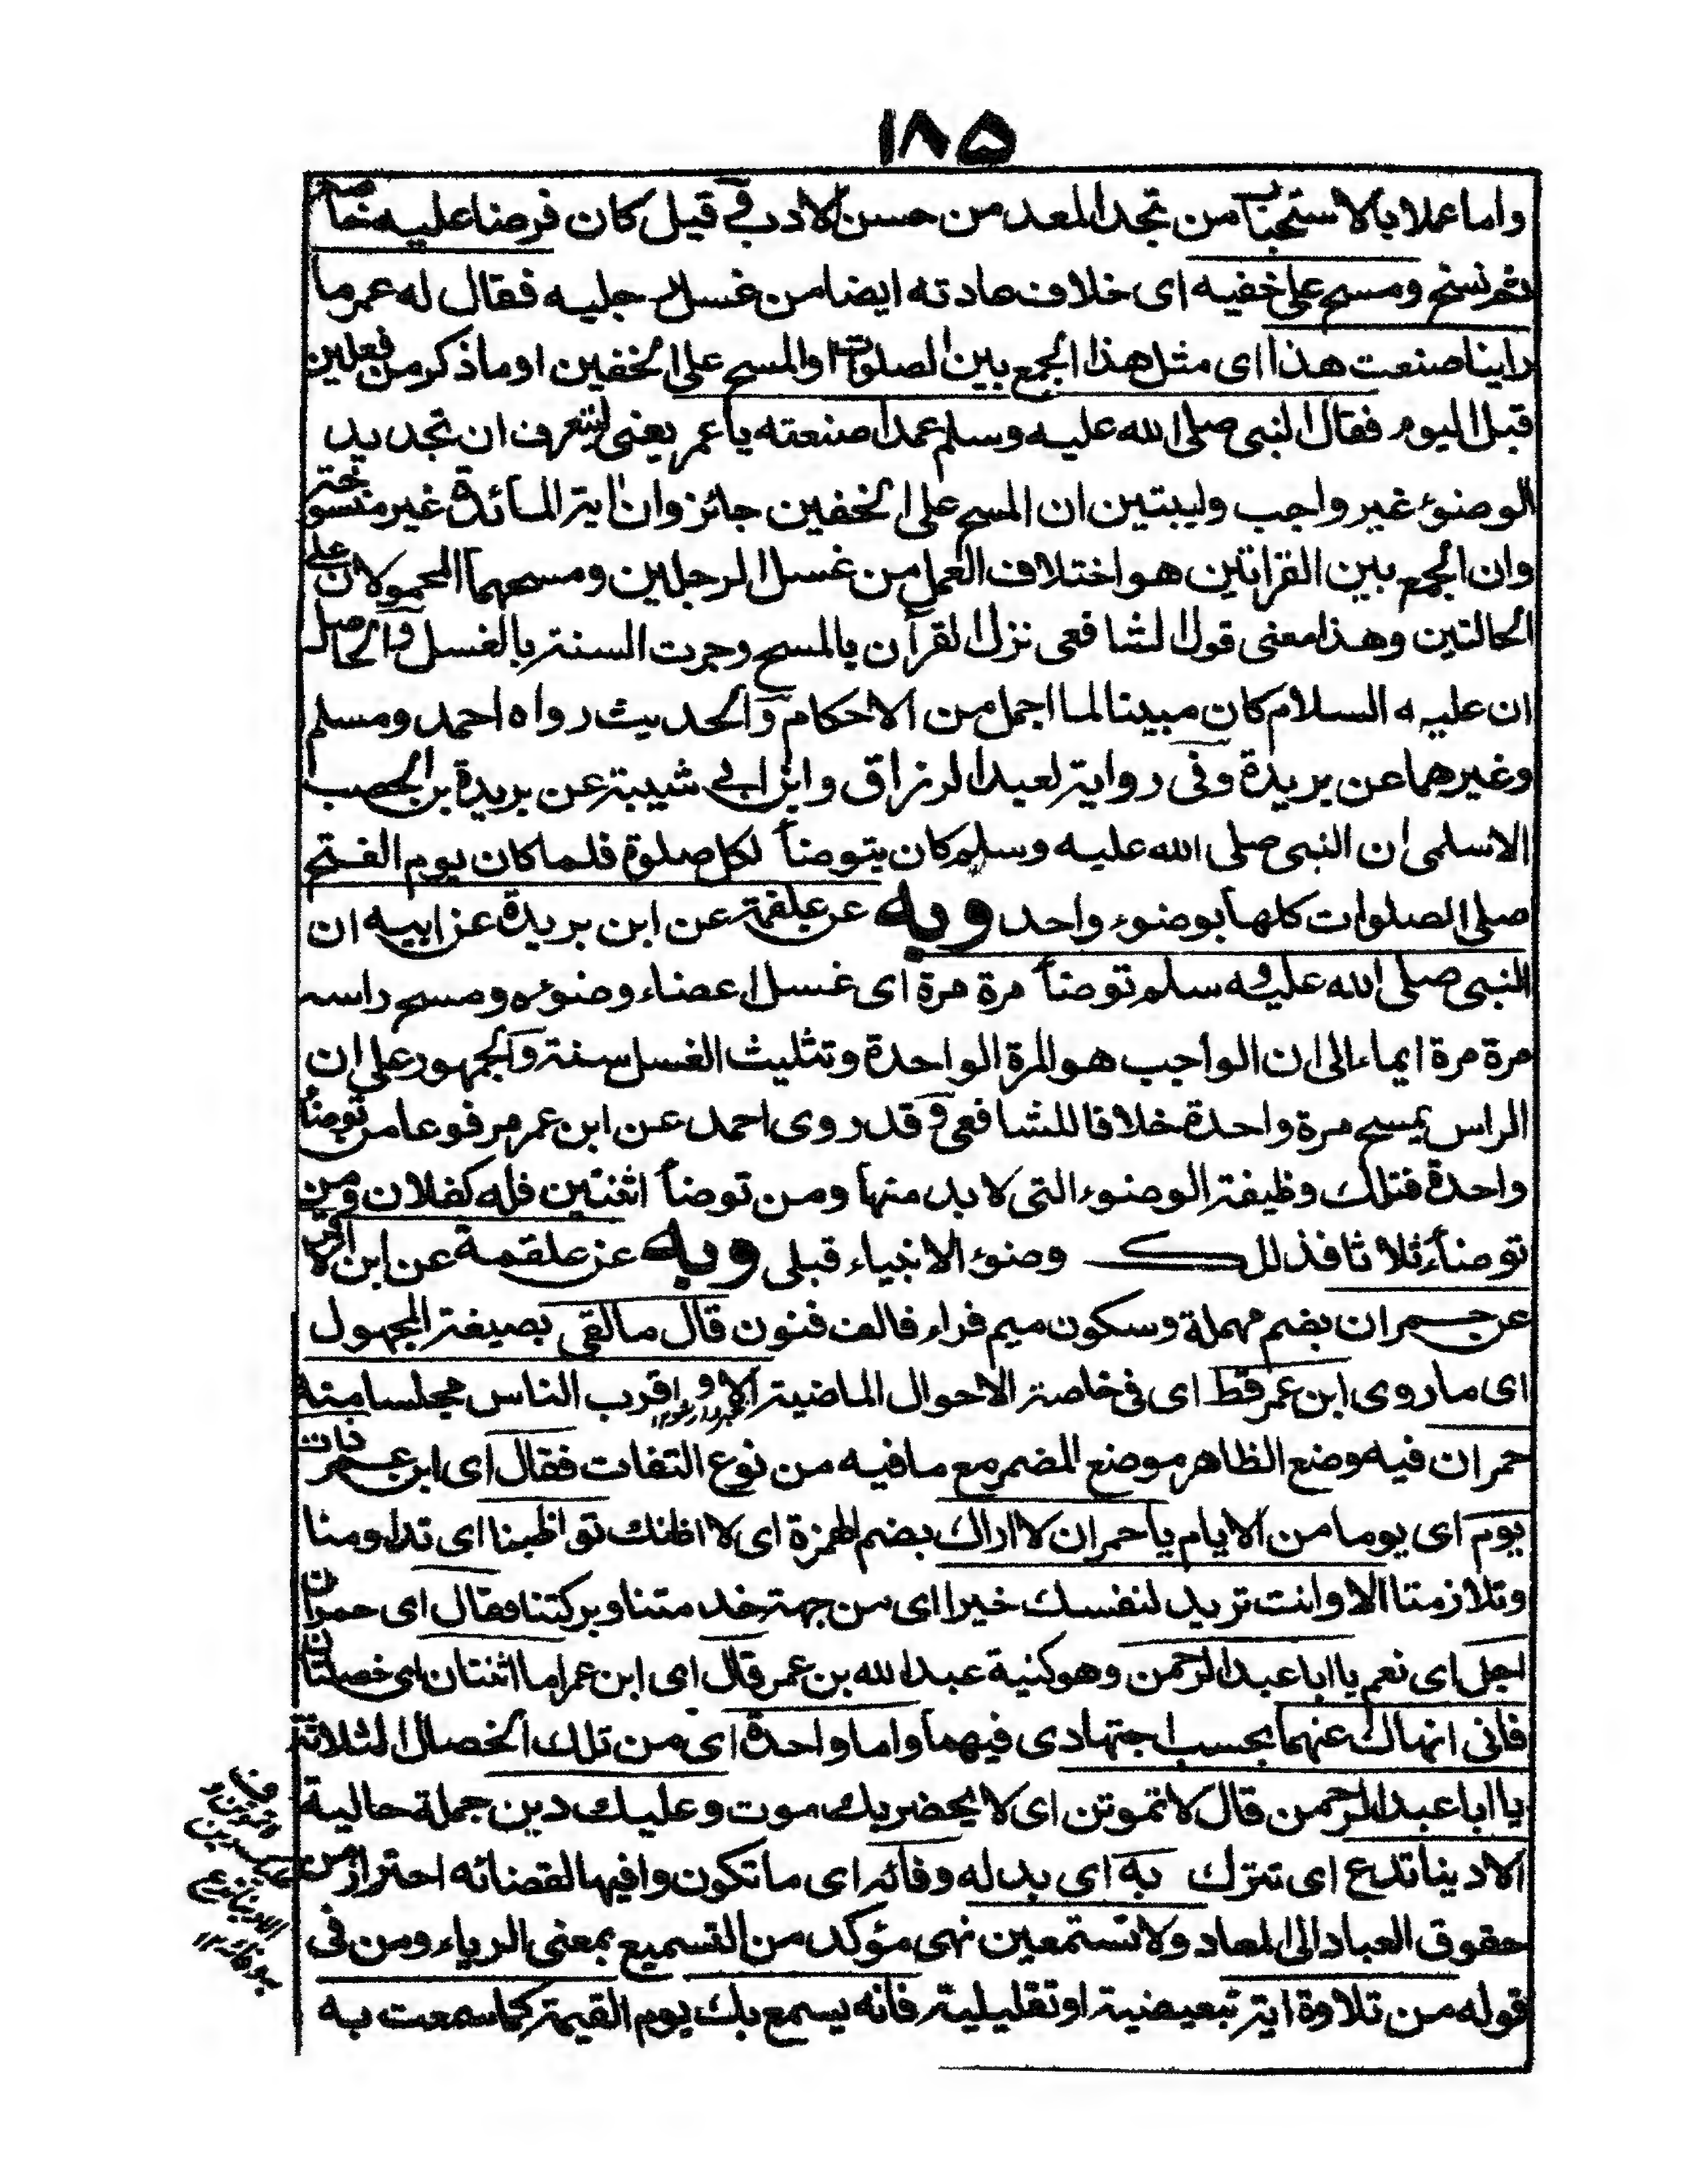 ١٨٥
واما عملا بالاستحباب من تجد المعد من حسن الادب في قيل كان فرضا عليه خاصة
ثم نسخ ومسح على خفيه اى خلاف عادته ايضا من غسل رجليه فقال له عمر ما
راينا صنعت هذا اى مثل هذا الجمع بين الصلوت او المسح على الخفين او ما ذكر من فعلين
قبل اليوم فقال النبى صلى الله عليه وسلم عمدا صنعته يا عمر يعنى لتعرف ان تجديد
الوضوء غير واجب وليبتين ان المسح على الخفين جائز وان اية المائدة غير منسوختر
وان الجمع بين القراتين هو اختلاف العمل من غسل الرجلين ومسحهما المحمولان على
الحالتين وهذا معنى قول الشافعى نزل القرآن بالمسح وجرت السنة بالغسل والحاصل
ان عليه ه السلام كان مبينا لما اجمل من الاحكام والحديث رواه احمد ومسلم
وغيرهما عن بريدة وفى رواية لعبد الرزاق وابن ابي شيبة عن بريدة بن الحصيب
الاسلمى ان النبى صلى الله عليه وسلم كان يتوضأ لكل صلوة فلما كان يوم الفتح
صلى الصلوات كلها بوضوء واحد وبه عن علقمة عن ابن بريدة عن ابيه ان
النبى صلى الله عليه وسلم توضأ مرة مرة اى غسل اعضاء وضوءه ومسح راسه
مرة مرة ايماء الى ان الواجب هو المرة الواحدة وتثليث الغسل سنة والجمهور على ان
الراس يمسح مرة واحدة خلافا للشافعى وقد روى احمد عن ابن عمر مرفوعا من توضأ
واحدة فتلك وظيفة الوضوء التى لا بد منها ومن توضأ اثنتين فله كفلان ومن
توضأ ثلاثا فذلك وضوء الانبياء قبلى وبه عن علقمة عن ابن
عن حمران بضم مهملة وسكون ميم فراء فالف فنون قال ما لقى بصيغة المجهول
اى ما روى ابن عمر قط اى فى خاصة الاحوال الماضية الا و اقرب الناس مجلسا منه
حمران فيه وضع الظاهر موضع المضمر مع ما فيه من نوع التفات فقال اى ابن عمر ذات
يوم اى يوما من الايام يا حمران لا اراك بضم الهمزة اى لا اظنك تواظبنا اى تداومنا
وتلازمنا الا وانت تريد لنفسك خيرا اى من جهة خدمتنا وبركتنا فقال اى حمران
اجل اى نعم يا ابا عبد الرحمن وهو كنية عبد الله بن عمر قال اى ابن عمر اما اثنتان اى خصلتان
فانى انهاك عنهما بحسب اجتهادى فيهما واما واحدة اى من تلك الخصال الثلاثة
يا ابا عبد الرحمن قال لا تموتن اى لا يحضر بك موت وعليك دين جملة حالية
الا دينا تدع اى تترك به اى بدله وفائه اى ما تكون وافيها لقضائه احتراز من
حقوق العباد الى المعاد ولا تستمعين نهى مؤكد من التسميع بمعنى الرياء ومن فى
قوله من تلاوة اية تبعيضية او تقليلية فانه يسمع بك يوم القيمة كما سمعت به